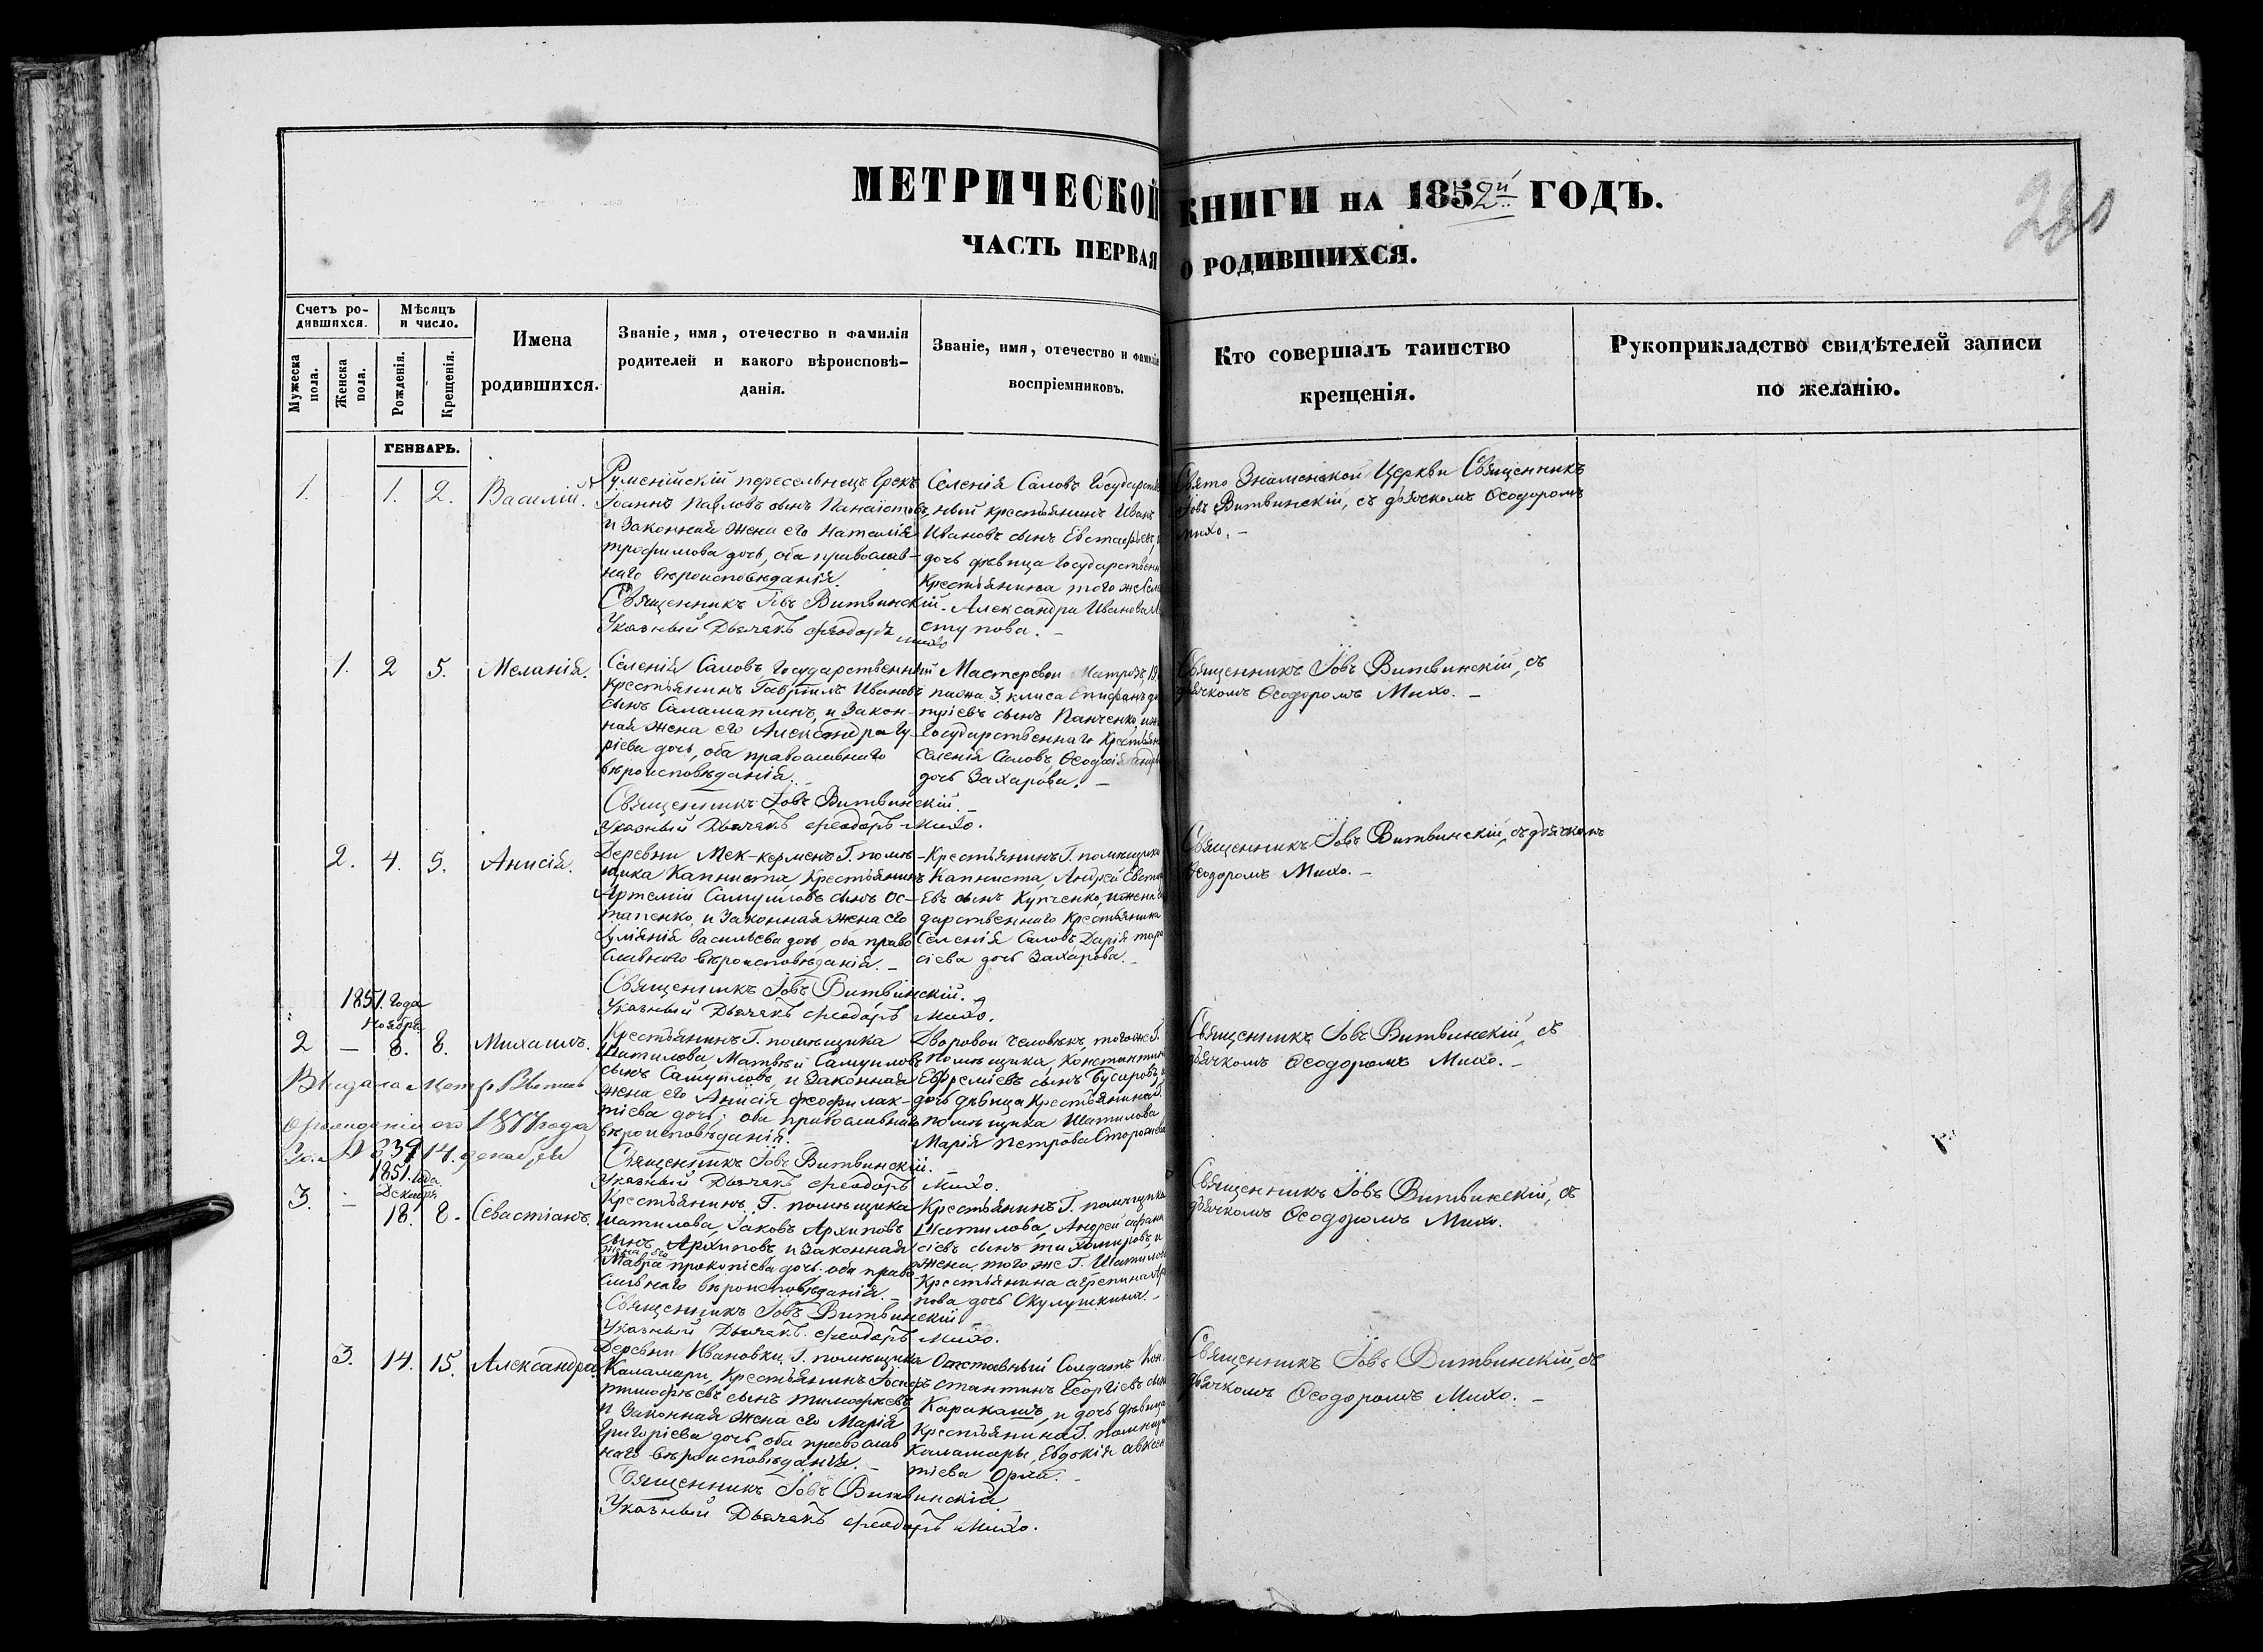 МЕТРИЧЕСКОЙ КНИГИ НА 1852й ГОДЪ.
ЧАСТЬ ПЕРВАЯ О РОДИВШИХСЯ.
Счетъ ро-
дившихся.
Мужеска
пола.
Женска
пола.
Мѣсяцъ
и число.
Рожденія.
Крещенія.
Имена
родившихся.
Званіе, имя, отечество и фамилія
родителей и какого вѣроисповѣ-
данія.
Званіе, имя, отечество и фамилія
воспріемниковъ.
Кто совершалъ таинство
крещенія.
Рукоприкладство свидѣтелей записи
по желанію.
ГЕНВАРЬ.
1.
1.
2.
Василій.
Іоаннъ Павловъ сынъ
и Законная жена его Наталія
трофимова дочь, оба православ-
наго вѣроисповѣданія.
Священникъ Іовъ Витвинскій.
Указный Дьячекъ Ѳеодоръ Михо
Селенія Саловъ Государствен
ный крестьянинъ Иванъ
Ивановъ сынъ
дочь дѣвица Государственн
Крестьянина того же
Александра Иванова
ступова.
Свято Знаменской Церкви Священникъ
Іовъ Витвинскій, съ дьячкомъ Ѳеодоромъ
Михо.
1.
2
5.
Меланія.
Селенія Саловъ Государственный
Крестьянинъ Гавріилъ Ивановъ
сынъ Саламатинъ, и Закон-
ная жена его Александра Гу-
ріева дочь, оба православнаго
вѣроисповѣданія.
Священникъ Іовъ Витвинскій.
Указный Дьячекъ Ѳеодоръ Михо.
Мастеровой Матрозъ
3. класа Епифанъ
тріевъ сынъ Панченко,
Государственнаго Крестьян
Селенія Саловъ, Ѳеодосія
дочь Захарова.
Священникъ Іовъ Витвинскій, съ
дьячкомъ Ѳеодоромъ Михо.
2.
4.
5.
Анисія.
Деревни Мек-керменъ Г. помѣ-
щика Капниста, Крестьянинъ
Артемій Самуиловъ сынъ Ос-
тапенко, и Законная жена его
Іуліянія васильева дочь, оба право
славнаго вѣроисповѣданія.
Священникъ Іовъ Витвинскій.
Указный Дьячекъ Ѳеодоръ Михо.
Крестьянинъ Г. помѣщика
Капниста, Андрей
евъ сынъ Купченко, и жена
дарственнаго Крестьянина
Селенія Саловъ Дарія тара
сіева дочь Захарова.
Священникъ Іовъ Витвинскій, съ дьячкомъ
Ѳеодоромъ Михо.
1851. Года
Ноября
2
—
8.
8.
Михаилъ.
Крестьянинъ Г. помѣщика
Шатилова, Матвѣй Самуиловъ
сынъ Самуиловъ, и Законная
жена его Анисія Ѳеофилак-
тіева дочь; оба православнаго
вѣроисповѣданія.
Священникъ Іовъ Витвинскій.
Указный Дьячекъ Ѳеодоръ Михо.
Дворовой человѣкъ, того же Г.
Помѣщика, Константинъ
Ефреміевъ сынъ
дочь дѣвица Крестьянина Г.
помѣщика Шатилова
Марія Петрова
Священникъ Іовъ Витвинскій, съ
дьячкомъ Ѳеодоромъ Михо.
1877 года
14. декабря
1851. Года.
Декабря
3.
—
18.
8.
Севастіанъ.
Крестьянинъ Г. помѣщика
Шатилова, Іаковъ Архиповъ
сынъ Архиповъ, и Законная
жена его
Мавра прокопіева дочь. оба право
славнаго вѣроисповѣданія.
Священникъ Іовъ Витвинскій
Указный Дьячекъ Ѳеодоръ Михо.
Крестьянинъ Г. помѣщика
Шатилова, Андрей афана
сіевъ сынъ тихомировъ, и
жена того же Г. Шатилова
Крестьянина агрепина
пова дочь Окулушкина.
Священникъ Іовъ Витвинскій, съ
дьячкомъ Ѳеодоромъ Михо.
3.
14.
15.
Александра.
Деревни Ивановки, Г. помѣщика
Каламари, Крестьянинъ Іосифъ
тимофѣевъ сынъ тимофѣевъ,
и Законная жена его Марія
Григоріева дочь, оба православ
наго вѣроисповѣданія.
Священникъ Іовъ Витвинскій
Указный Дьячекъ Ѳеодоръ Михо.
Отставный Солдатъ Кон
стантинъ Георгіевъ сынъ
Каракашъ, и дочь дѣвица
Крестьянина Г. помѣщи
Каламары, Евдокія авксен
тіева
Священникъ Іовъ Витвинскій, съ
дьячкомъ Ѳеодоромъ Михо.